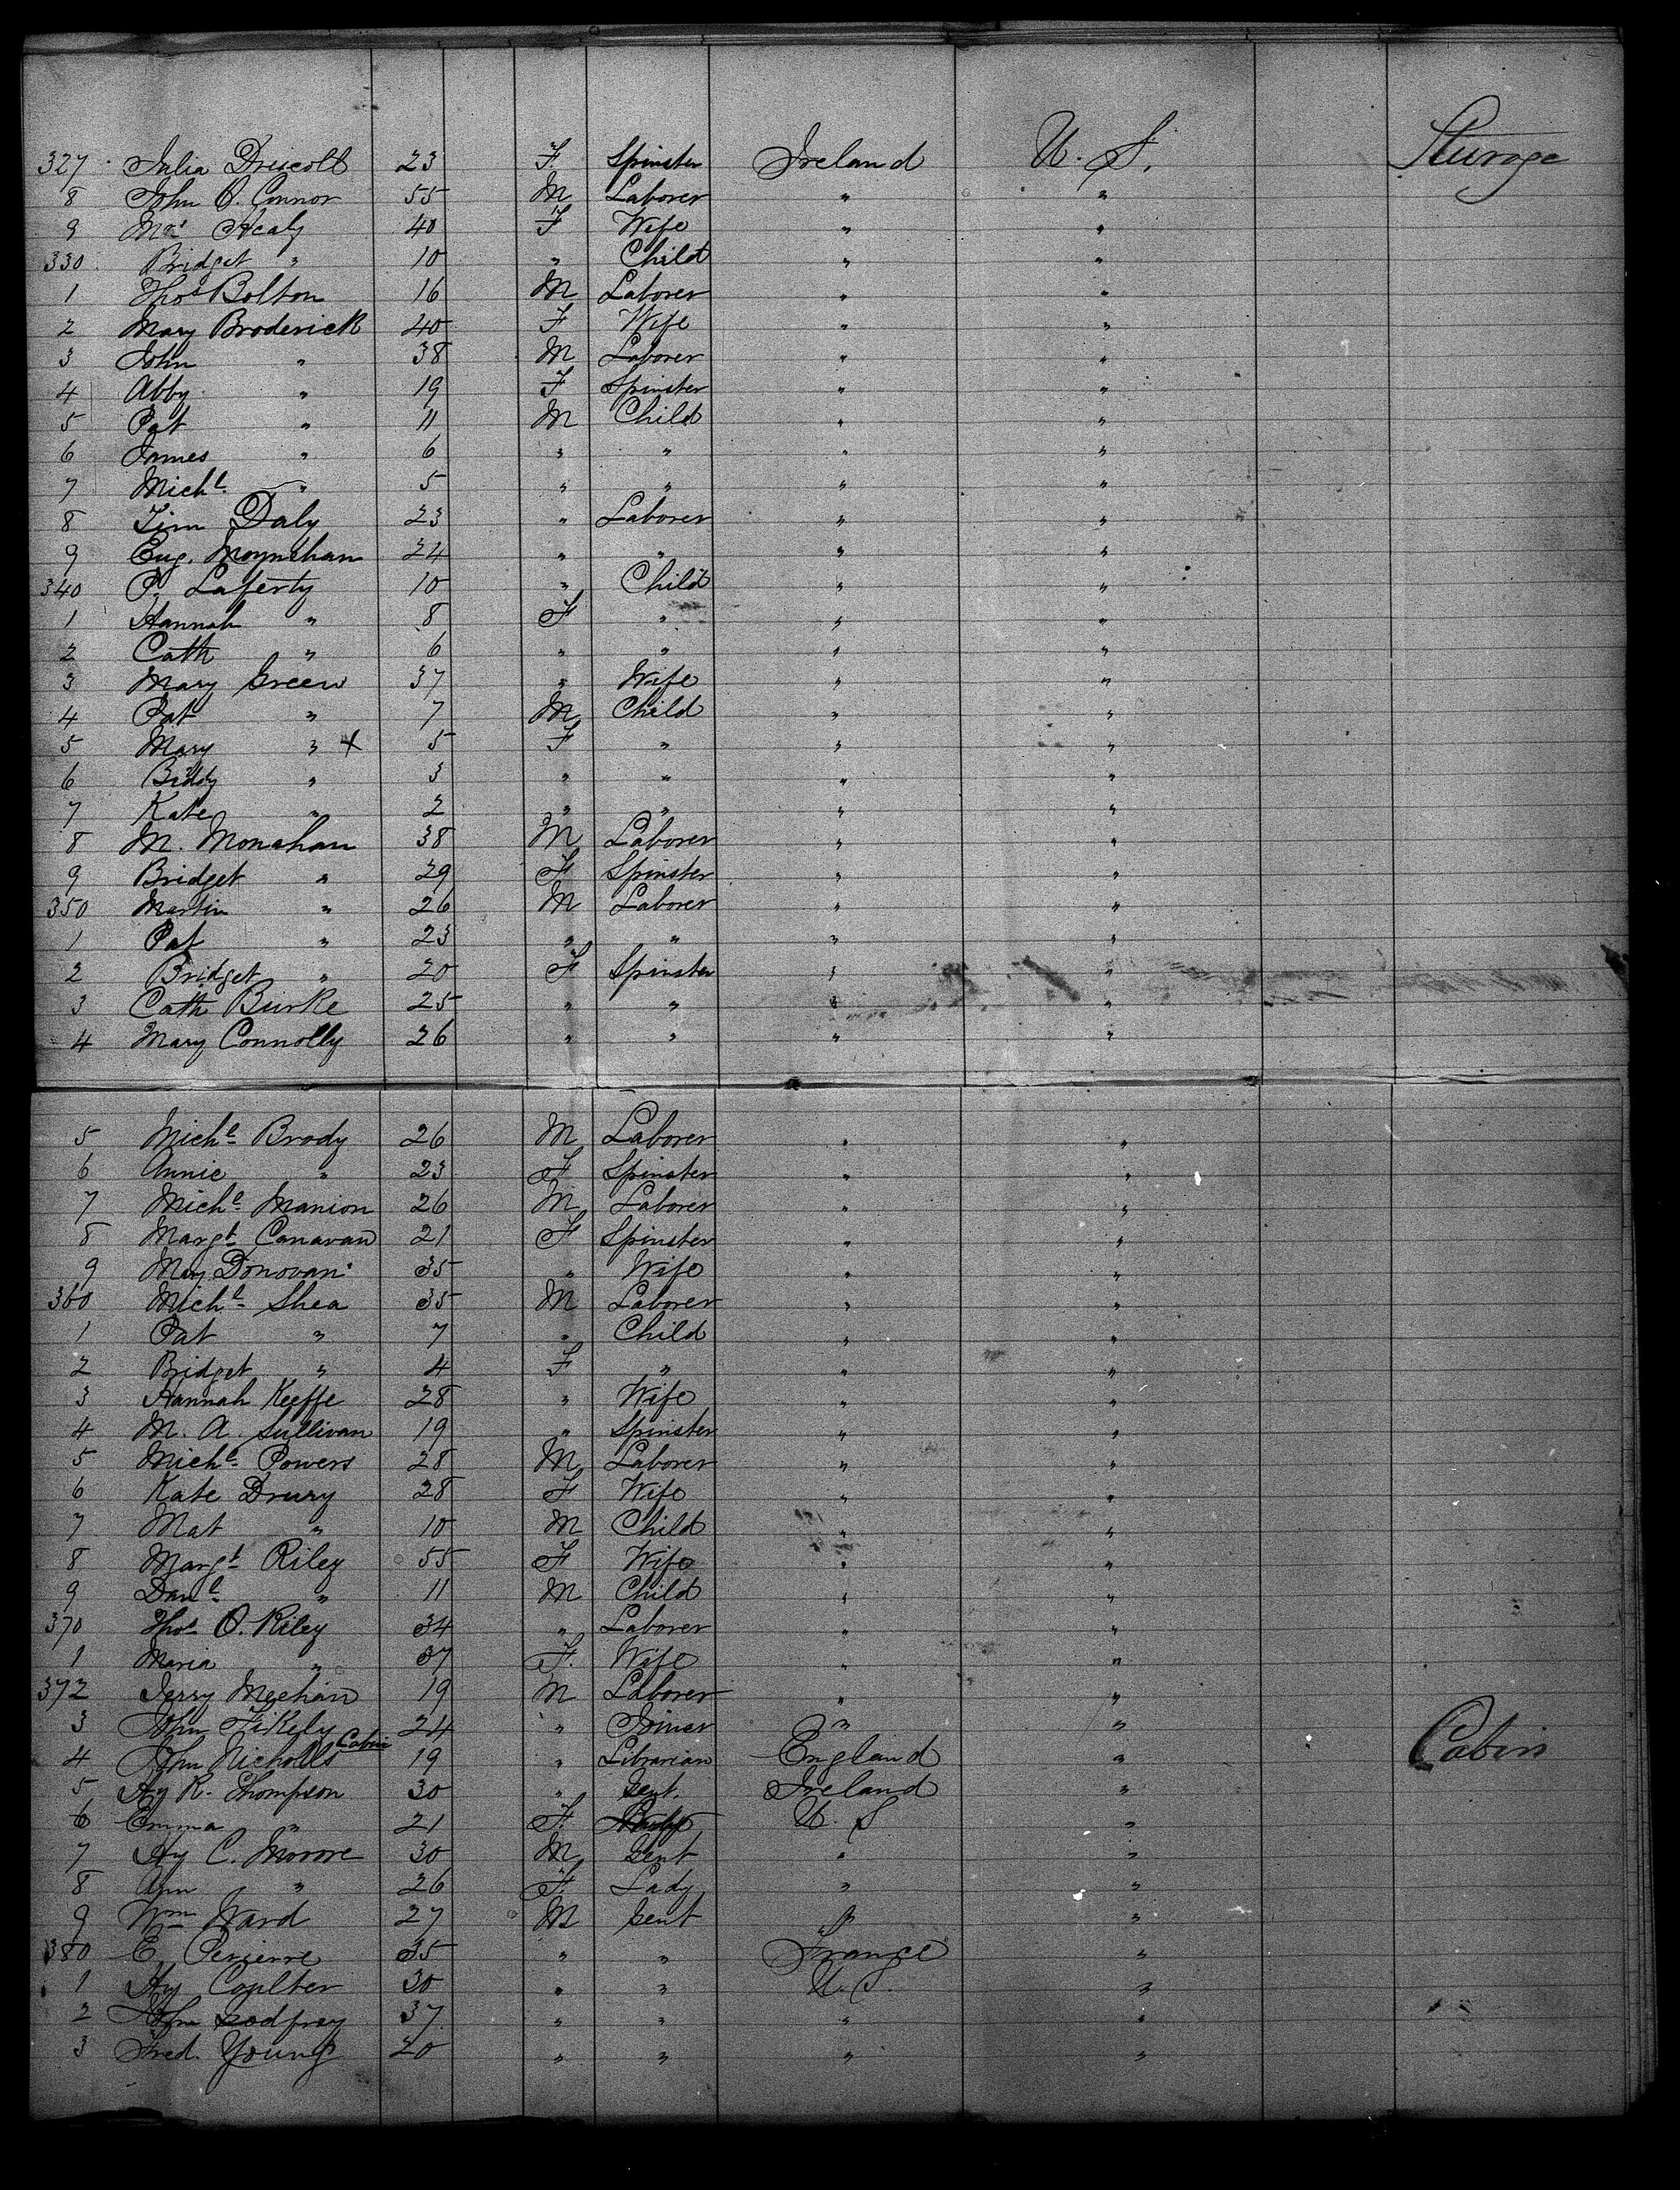 327 Julia Driscoll 23 F. Spinster Ireland U. S. Steerage
8 John O. Connor 55 M Laborer " "
9 Mrs Healy 40 F Wife " "
330 Bridget " 10 " Child " "
1 Thos Bolton 16 M Laborer " "
2 Mary Broderick 40 F Wife " "
3 John " 38 M Laborer " "
4 Abby " 19 F Spinster " "
5 Pat " 11 M Child " "
6 James " 6 " " " "
7 Michl " 5 " " " "
8 Tim Daly 23 " Laborer " "
9 Eug. Moynahan 24 " " " "
340 P. Laferty 10 " Child " "
1 Hannah " 8 F " " "
2 Cath " 6 " " " "
3 Mary Green 37 " Wife " "
4 Pat " 7 M Child " "
5 Mary " x 5 F " " "
6 Biddy " 3 " " " "
7 Kate " 2 " " " "
8 M. Monahan 38 M Laborer " "
9 Bridget " 29 F Spinster " "
350 Martin " 26 M Laborer " "
1 Pat " 23 " " " "
2 Bridget " 20 F Spinster " "
3 Cath Burke 25 " " " "
4 Mary Connolly 26 " " " "
5 Michl Brody 26 M Laborer " "
6 Annie " 23 F Spinster " "
7 Michl Manion 26 M Laborer " "
8 Margt Canavan 21 F Spinster " "
9 May Donovan 35 " Wife " "
360 Michl Shea 35 M Laborer " "
1 Pat " 7 " Child " "
2 Bridget " 4 F " " "
3 Hannah Keeffe 28 " Wife " "
4 M. A. Sullivan 19 " Spinster " "
5 Michl Powers 28 M Laborer " "
6 Kate Drury 28 F Wife " "
7 Mat " 10 M Child " "
8 Margt Riley 55 F Wife " "
9 Danl " 11 M Child " "
370 Thos O. Riley 34 " Laborer " "
1 Maria " 37 F. Wife " "
372 Jerry Meehan 19 M Laborer " "
3 John 24 " Joiner " "
4 John Nicholls Cabin 19 " Librarian England " Cabin
5 Hy R. Thompson 30 " Gent. Ireland "
6 Emma " 21 F. U. S "
7 Hy C. Moore 30 M Gent " "
8 Ann " 26 F. Lady " "
9 Wm Ward 27 M Gent " "
380 E. 35 " " France "
1 Hy Coulter 30 " " U. S. "
2 John Godfrey 37 " " " "
3 Fred. Young 20 " " " "